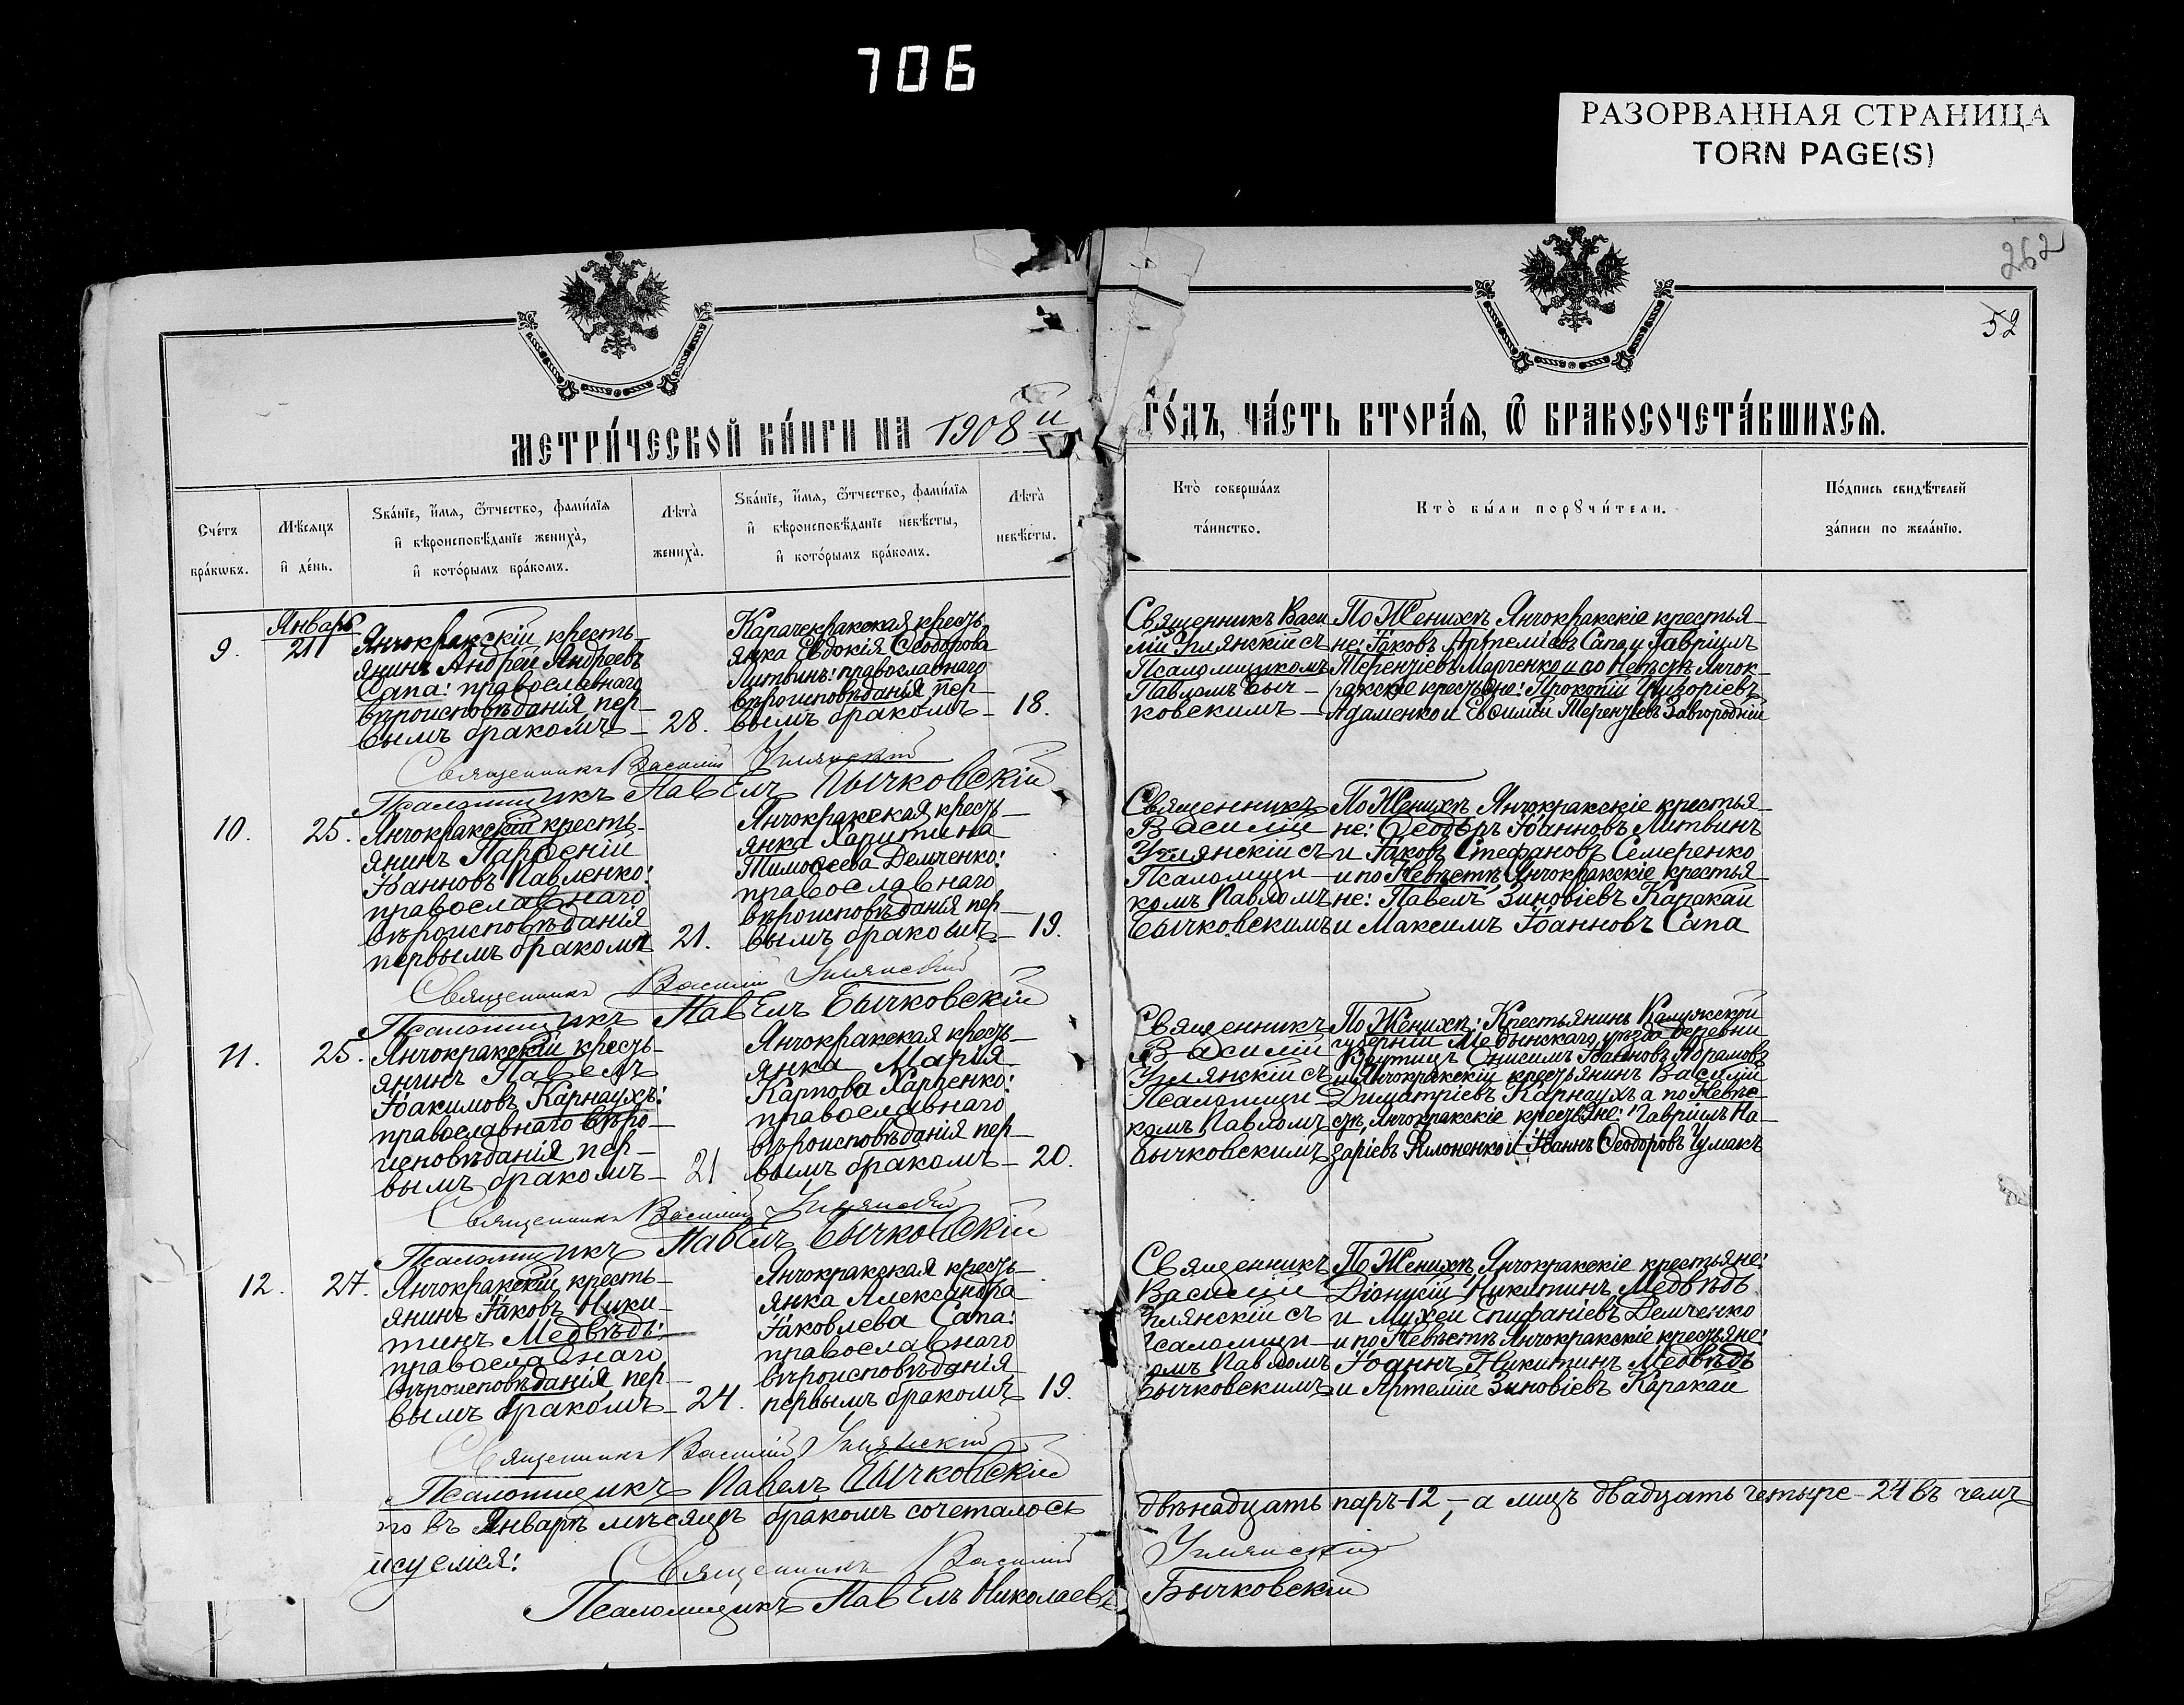 706
РАЗОРВАННАЯ СТРАНИЦА
TORN PAGE(S)
262
52
МЕТРИ́ЧЕСКОЙ КНИ́ГИ НА 1908й
ГО́ДЪ, ЧА́СТЬ ВТОРА́Я, Ѿ БРАКОСОЧЕТА́ВШИХСЯ.
Сче́тъ
бра́кѡвъ.
Мѣ́сяцъ
и҆ де́нь.
Ѕва́нїе, и҆́мя, ѻ҆́тчество, фами́лїя
и҆ вѣроисповѣ́данїе жениха̀,
и҆ кото́рымъ бра́комъ.
Лѣ́та̀
жениха̀.
Ѕва́нїе, и҆́мя, ѻ҆́тчество, фами́лїя
и҆ вѣроисповѣ́данїе невѣ́сты,
и҆ кото́рымъ бра́комъ.
Лѣ́та̀
невѣ́сты.
Кто̀ соверша́лъ
та́инство.
Кто̀ бы́ли порꙋчи́тели.
По́дпись свидѣ́телей
за́писи по жела́нїю.
Январь
9.
21
Янчокракскій кресть-
янинъ Андрей Андреевъ
Сапа: православнаго
вѣроисповѣданія пер-
вымъ бракомъ-
28.
Карачекракская кресть-
янка Евдокія Ѳеодорова
Литвинъ: православнаго
вѣроисповѣданія пер-
вымъ бракомъ-
18.
Священникъ Васи
лій Углянскій съ
Псаломщикомъ
Павломъ Быч-
ковскимъ-
По Женихѣ Янчокракскіе крестья-
не: Іаковъ Артеміевъ Сапа и Гавріилъ
Терентіевъ Марченко и по Невѣстѣ Янчок-
ракскіе крестьяне: Прокопій Григоріевъ
Адаменко и Евѳимій Терентіевъ Завгородній
Священникъ Василій Углянскій
Псаломщикъ Павелъ Бычковскій
10.
25.
Янчокракскій кресть-
янинъ Парѳеній
Іоанновъ Павленко:
православнаго
вѣроисповѣданія
первымъ бракомъ
21.
Янчокракская кресть-
янка Харитина
Тимоѳеева Демченко:
православнаго
вѣроисповѣданія пер-
вымъ бракомъ-
19.
Священникъ
Василій
Углянскій съ
Псаломщи-
комъ Павломъ
Бычковскимъ
По Женихѣ Янчокракскіе крестья-
не: Ѳеодоръ Іоанновъ Литвинъ
и Іаковъ Стефановъ Семеренко
и по Невѣстѣ Янчокракскіе крестья-
не: Павелъ Зиновіевъ Каракай
и Максимъ Іоанновъ Сапа
Священникъ Василій Углянскій
Псаломщикъ Павелъ Бычковскій
11.
25.
Янчокракскій кресть-
янинъ Павелъ
Іоакимовъ Карнаухъ:
православнаго вѣро-
исповѣданія пер-
вымъ бракомъ-
21
Янчокракская кресть-
янка Марія
Карпова Харченко:
православнаго
вѣроисповѣданія пер-
вымъ бракомъ-
20.
Священникъ
Василій
Углянскій съ
Псаломщи-
комъ Павломъ
Бычковскимъ
По Женихѣ: Крестьянинъ Калужской
губерніи Медынскаго уѣзда деревни
Крутицъ Онисимъ Іоанновъ Абрамовъ
и Янчокракскій крестьянинъ Василій
Димитріевъ Карнаухъ а по Невѣс-
тѣ, Янчокракскіе крестьяне: Гавріилъ На-
заріевъ Филоненко и Іоаннъ Ѳеодоровъ Чумакъ
Священникъ Василій Углянскій
Псаломщикъ Павелъ Бычковскій
12.
27.
Янчокракскій кресть-
янинъ Іаковъ Ники-
тинъ Медвѣдь:
православнаго
вѣроисповѣданія пер-
вымъ бракомъ-
24.
Янчокракская кресть-
янка Александра
Іаковлева Сапа:
православнаго
вѣроисповѣданія
первымъ бракомъ
19.
Священникъ
Василій
Углянскій съ
Псаломщи-
комъ Павломъ
Бычковскимъ
По Женихѣ Янчокракскіе крестьяне:
Діонисій Никитинъ Медвѣдь
и Мухей Епифаніевъ Демченко
и по Невѣстѣ Янчокракскіе крестьяне:
Іоаннъ Никитинъ Медвѣдь
и Артемій Зиновіевъ Каракай
Священникъ Василій Углянскій
Псаломщикъ Павелъ Бычковскій
го въ Январѣ мѣсяцѣ бракомъ сочеталось двѣнадцать паръ-12,-а лицъ двадцать четыре-24 въ чемъ
исуемся:
Священникъ Василій Углянскій
Псаломщикъ Павелъ Николаевъ Бычковскій